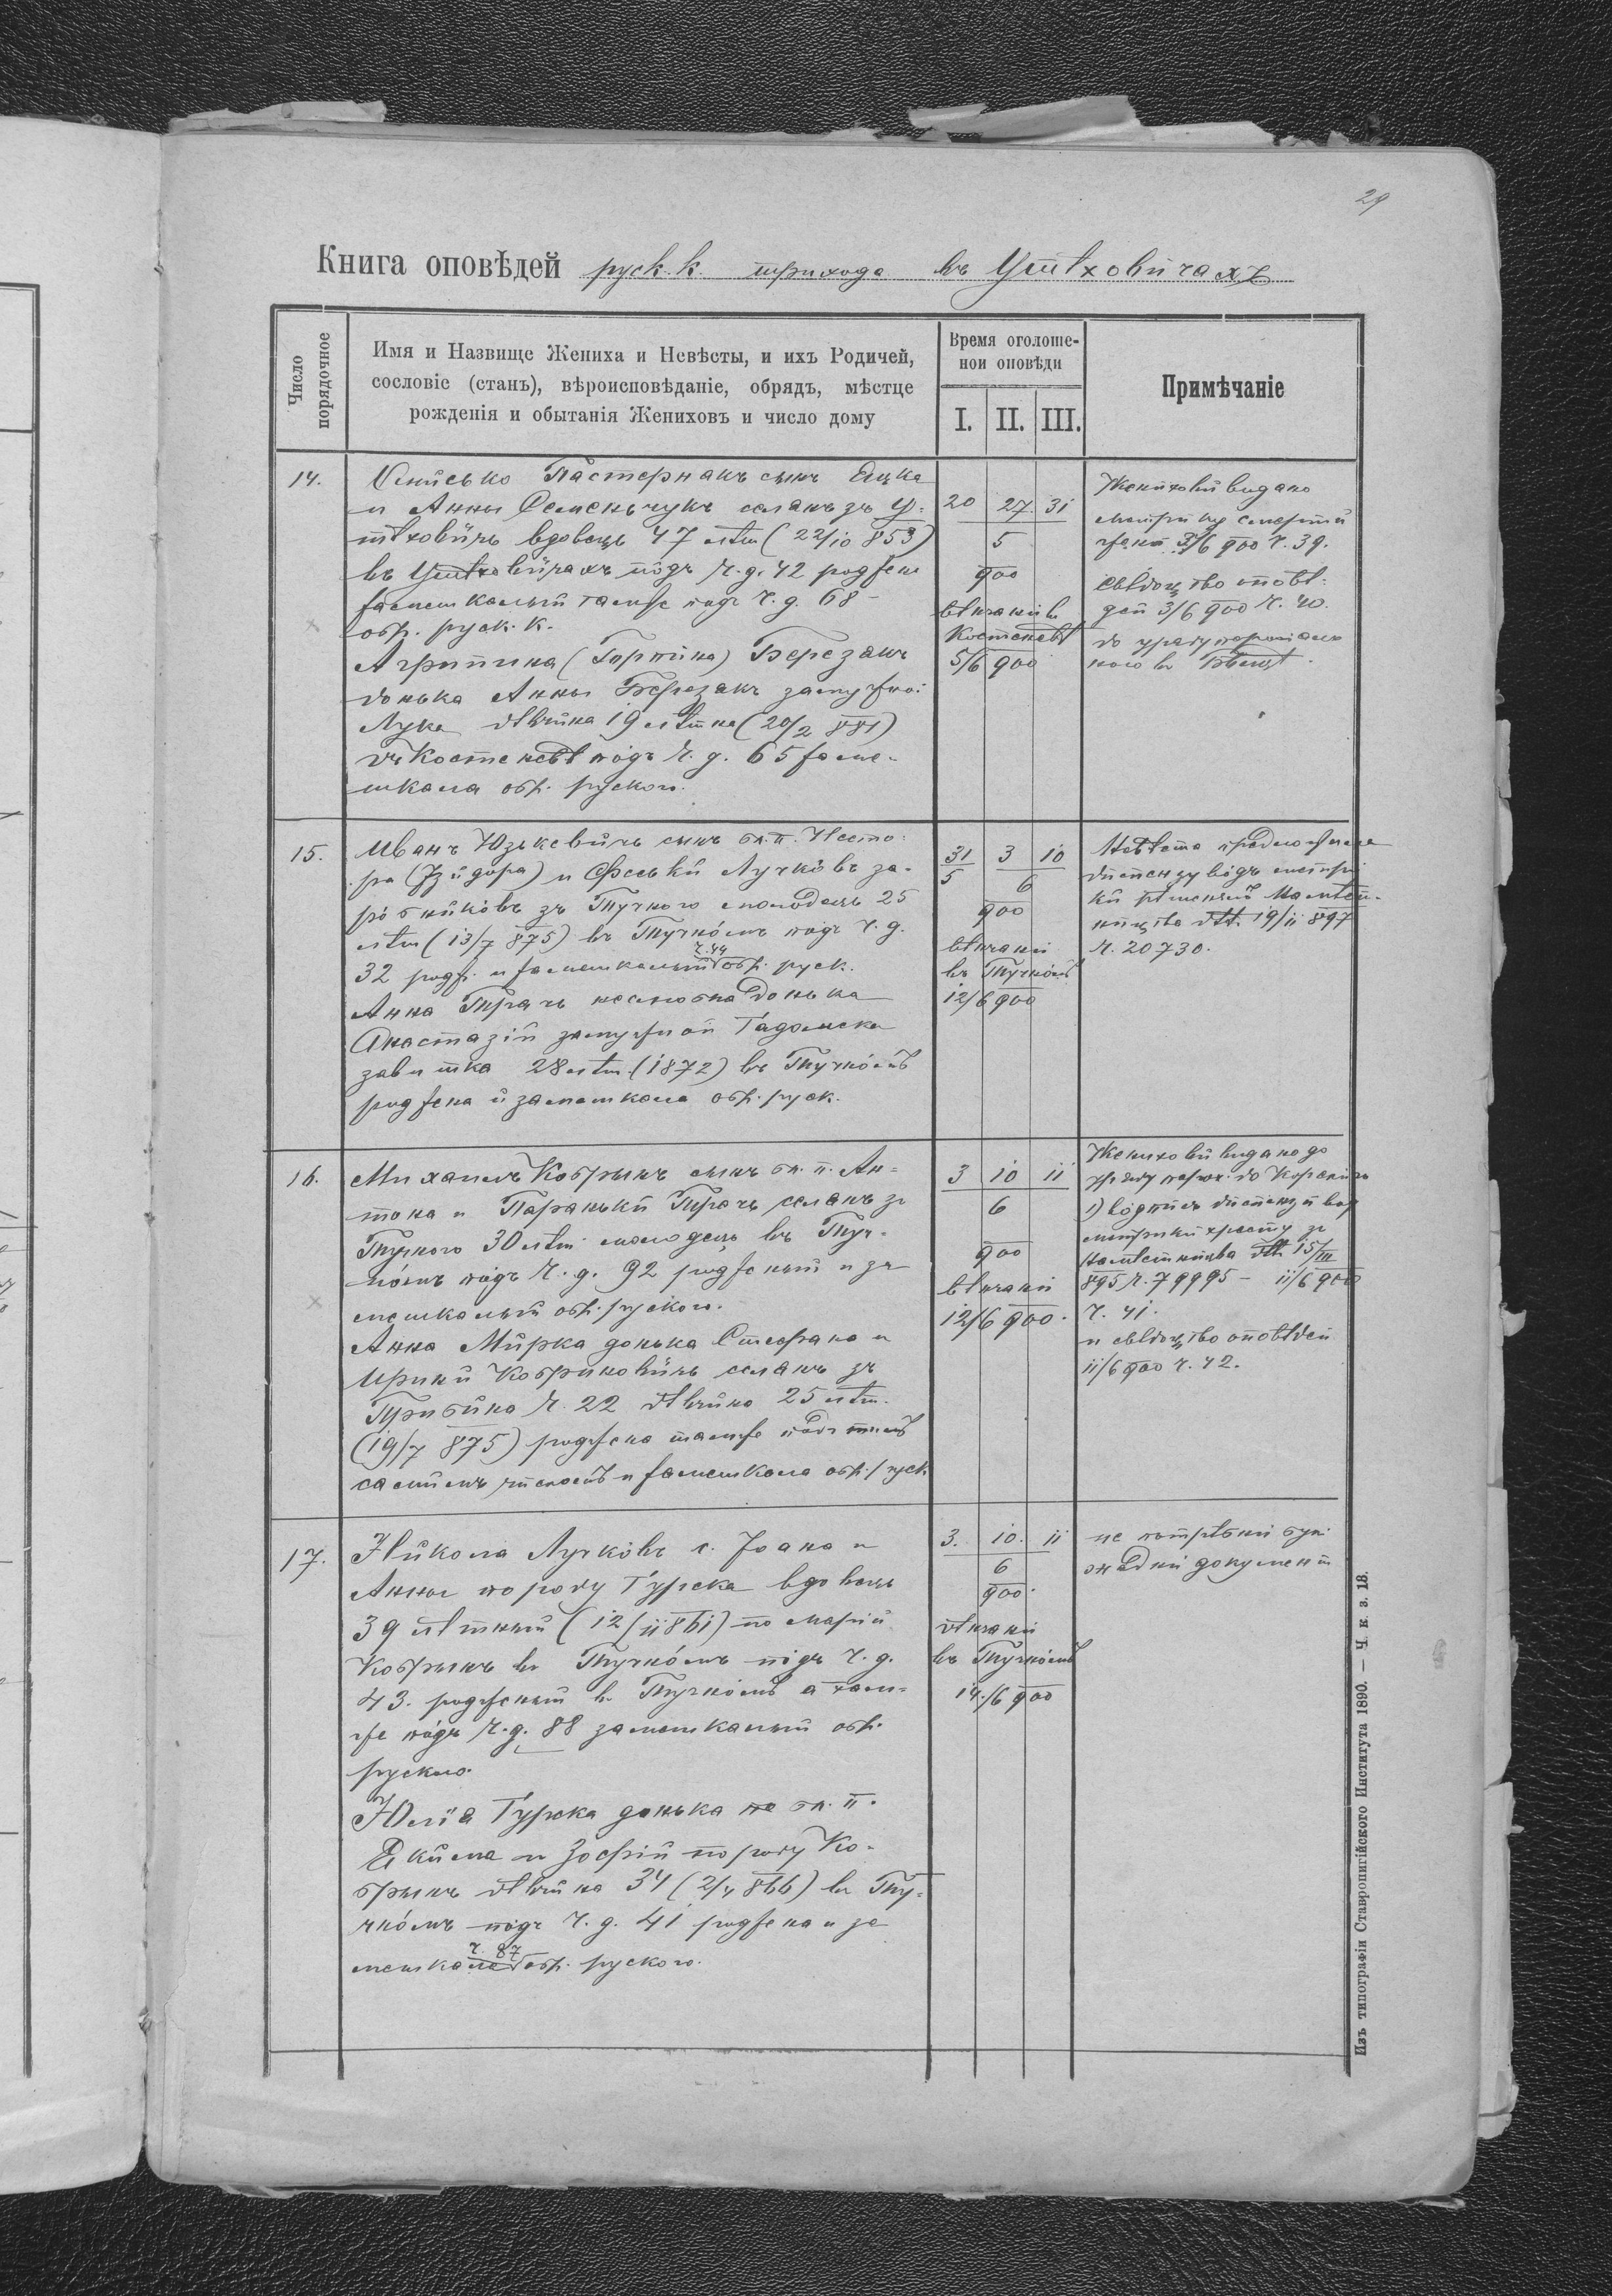 29
Книга оповѣдей руск. к. прихода въ Уйтховичахъ
Число порядочное
Имя и Назвище Жениха и Невѣсты, и ихъ Родичей,
сословіе (станъ), вѣроисповѣданіе, обрядъ, мѣстце
рожденія и обытанія Жениховъ и число дому
Время оголоше-
нои оповѣди
I. II. III.
Примѣчаніе
14.
Пастернакъ сынъ Яцка
и Анны Семеньчукъ селянъ зъ У-
вдовець 47 лѣтн (22/10 853)
въ подъ ч. д. 42 роджен
замешкалый тамже подъ ч. д. 68 –
обр. руск. к.
Агрипина (Горпина) Березакъ
донька Анны Березакъ замужной
Лука дѣвчина 19 лѣтна (20/2 881)
въ Костеневѣ подъ ч. д. 65 заме-
шкала обр. руского.
20 27. 31
5
900
вѣнчаній въ
Костеневѣ
5/6 900
Женихови видано
метрику смерти
жены 3/6 900 ч. 39.
свѣдоцтво оповѣ-
дей 3/6 900 ч. 40.
до уряду
кого въ
15.
Иванъ Юзькевичъ сынъ бл. п. Несто-
ра (Ізидора) и Феськи Лучковъ за-
робниковъ зъ Тучного молодець 25
лѣтн (13/7 875) въ Тучномъ подъ ч. д.
ч. 44
32 родж. и замешкалый обр. руск.
Анна Ткрачъ неслюбна донька
Анастазіи замужной Гадомска
завитка 28 лѣтн. (1872) въ Тучномъ
роджена и замешкала обр. руск.
31 3 10
5 6
900
вѣнчаній
въ Тучномъ
12/6 900
Невѣста предложила
диспензу водъ метри
ки Намѣст-
ництва dtt. 19/11 897
ч. 20730.
16.
Михаилъ Кобрынъ сынъ бл. п. Ан-
тона и Параньки Ткрачъ селянъ зъ
Тучного 30 лѣтн молодець въ Туч-
номъ подъ ч. д. 92 родженый и за
мешкалый обр. руского.
Анна Мирка донька Стефана и
Ирини Кобриновичъ селянъ зъ
ч. 22 дѣвчина 25 лѣтн.
(19/7 875) роджена тамже подъ тимъ
самимъ числомъ и замешкала обр. руск
3 10 11
6
900
вѣнчаній
12/6 900.
Женихови видано до
уряду
1) водпись диспензи вод
метрики хресту зъ
Намѣстництва dtt. 15/III
895 ч. 79995 – 11/6 900
ч. 41.
и свѣдоцтво оповѣдей
11/6 900 ч. 42.
17.
Никола Лучковъ с. Іоана и
Анны по роду Гурска вдовець
39 лѣтный (12/11 861) по Маріи
Кобрынъ въ Тучномъ подъ ч. д.
43. родженый въ Тучномъ а там-
же подъ ч. д. 88 замешкалый обр.
руского.
Юлія Гурска донька по бл. п.
Якима и Зофіи по роду Ко-
брынъ дѣвчина 34 (2/4 866) въ Ту-
чномъ подъ ч. д. 41 роджена и за
ч. 87
мешкала обр. руского.
3. 10. 11
6
900.
вѣнчаній
въ Тучномъ
14./6 900
не потребній бул
жадній документ
Изъ типографіи Ставропигійского Института 1890. — Ч. к. з. 18.